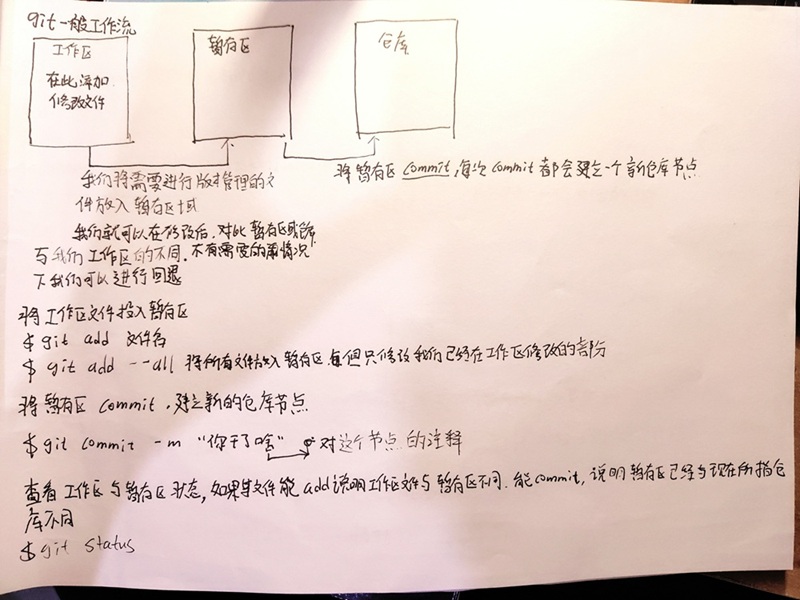 git一般工作流
工作区
在此添加
修改文件
暂存区
仓库
我们将需要进行版本管理的文
件放入暂存区域
将暂存区commit,每次commit都会建立一个新仓库节点
我们就可以在修改后,对比暂存区或
与我们工作区的不同,不有需要的情况
下我们可以进行回退
将工作区文件投入暂存区
$ git add 文件名
$ git add --all 将所有文件放入暂存区,但只修改我们已经在工作区修改的部份
将暂存区commit,建立新的仓库节点
$ git commit -m "你干了啥" 对这个节点的注释
查看工作区与暂存区状态,如果某文件能add说明工作区文件与暂存区不同.能commit,说明暂存区已经与现在所指仓
库不同
$ git status